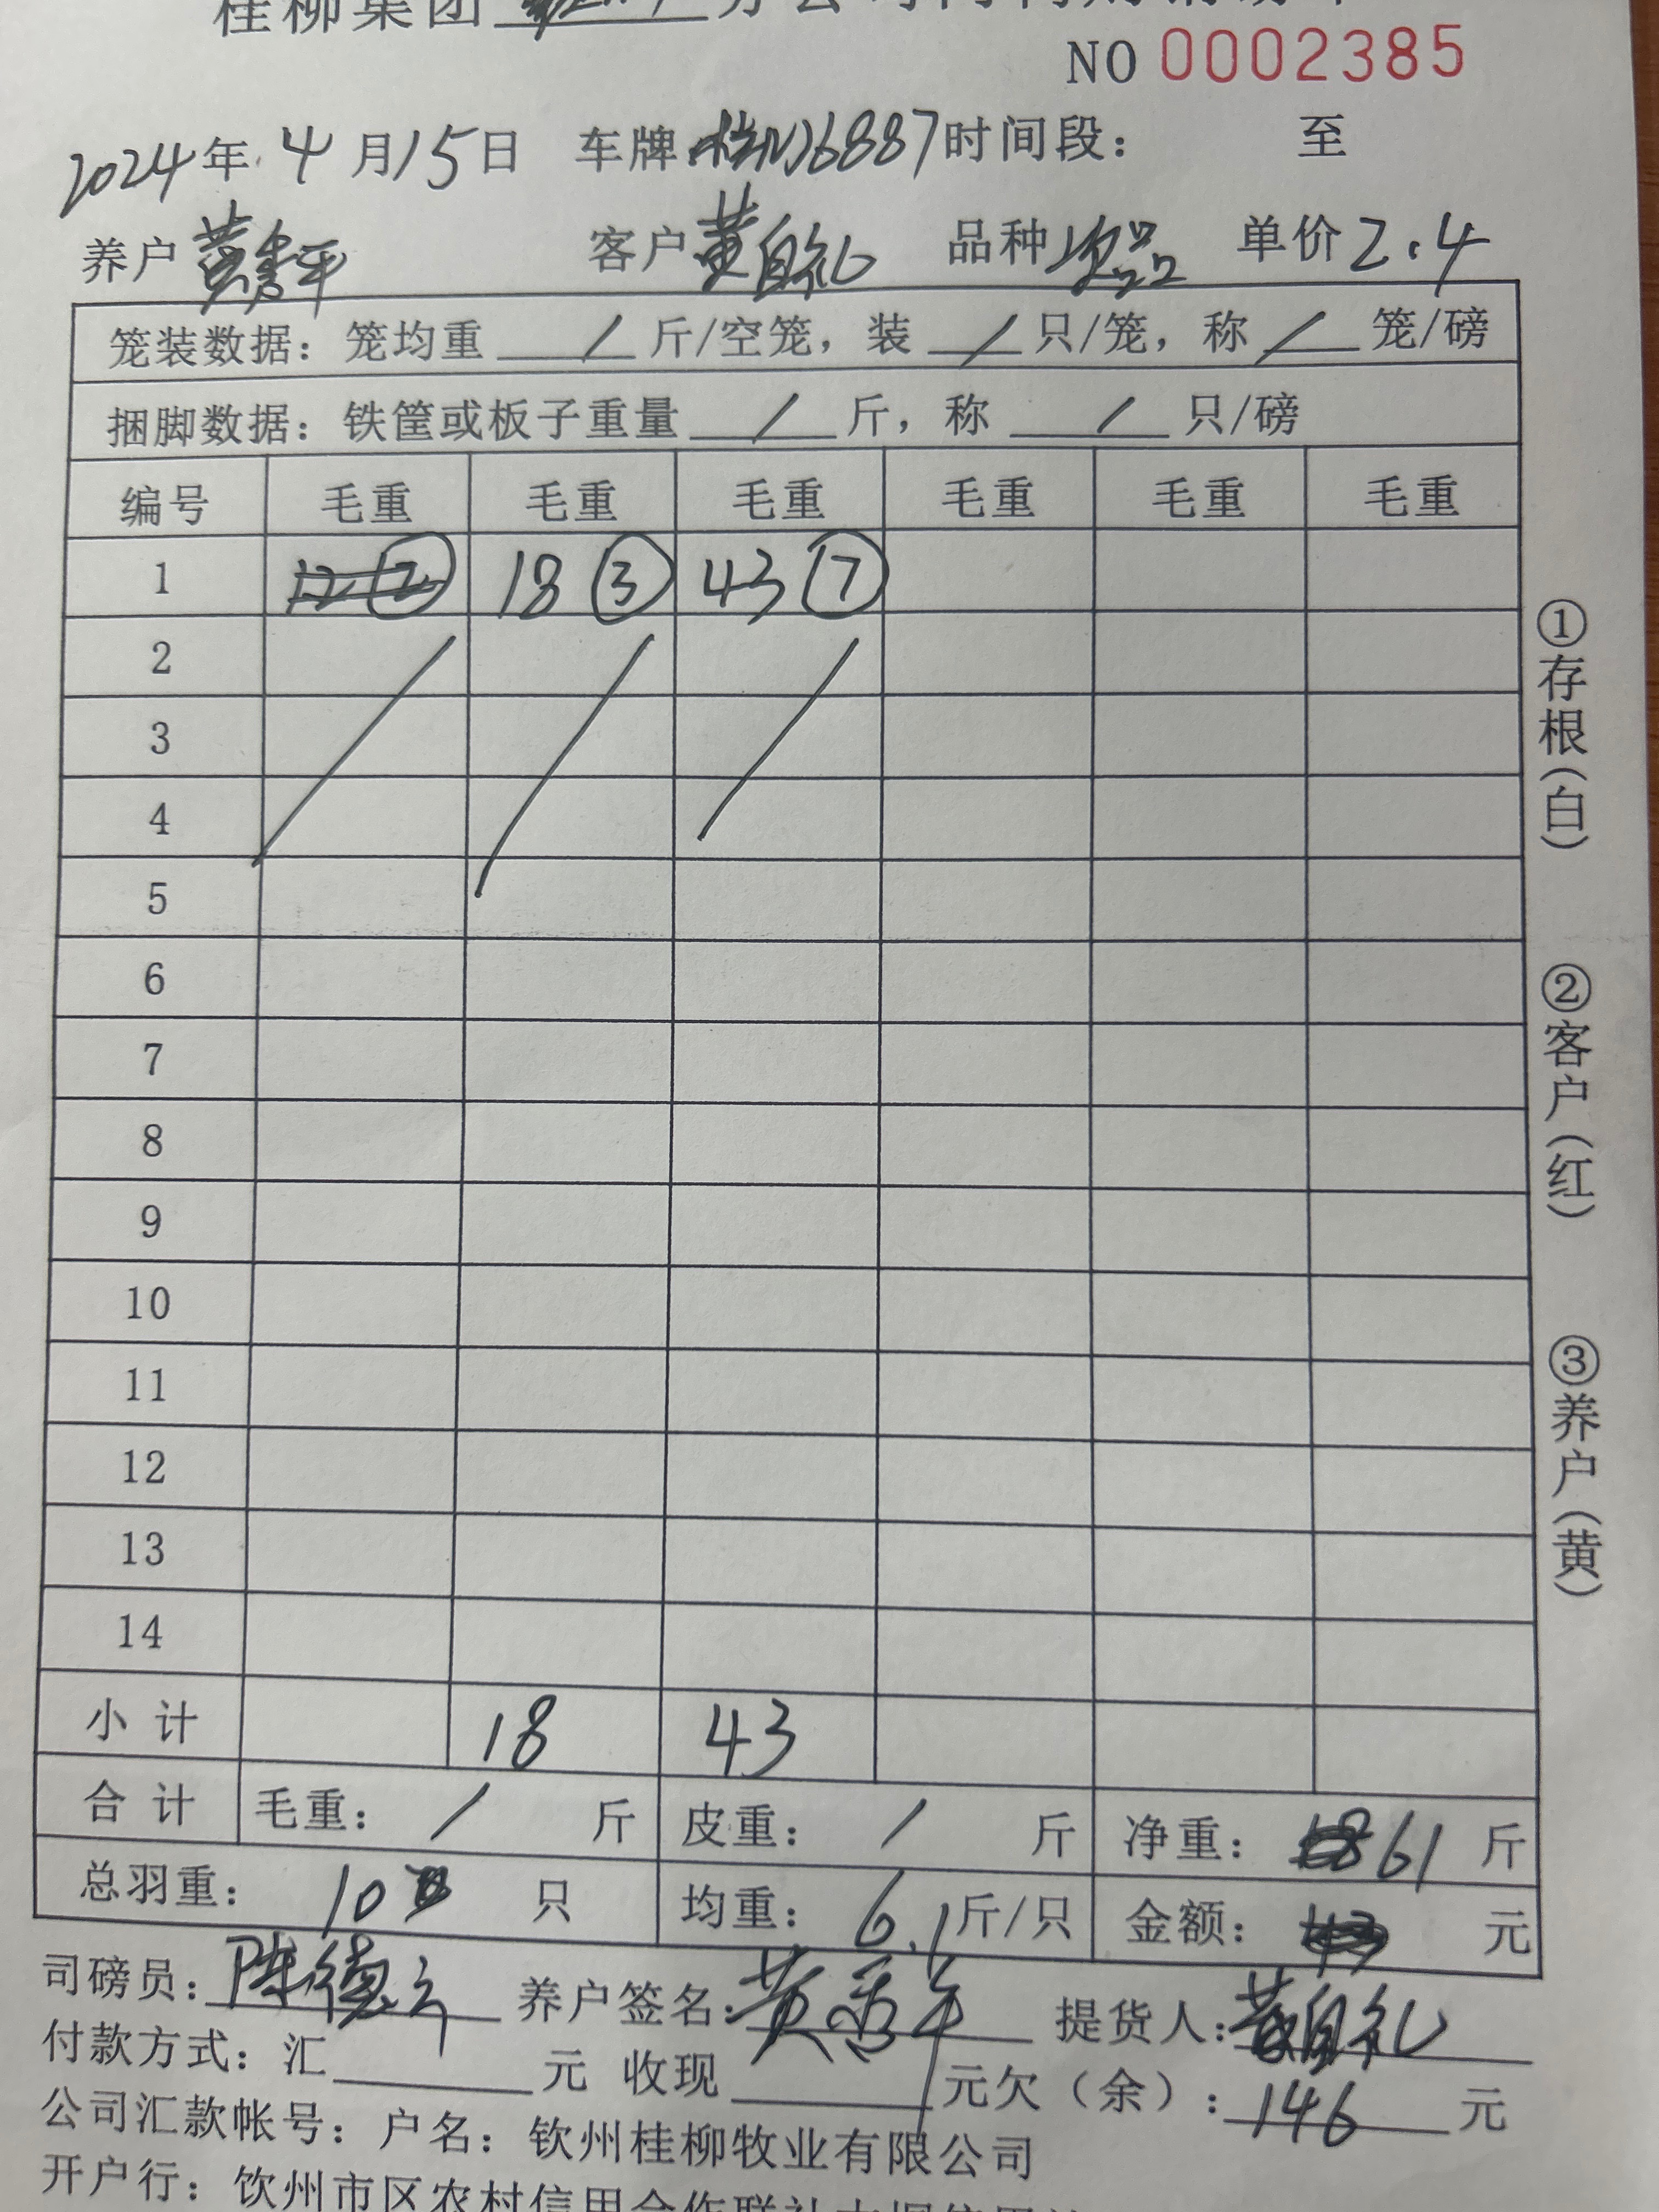 桂柳集团 分公司
NO 0002385
2024年 4 月 15 日 车牌: 桂N16887 时间段： 至
养户 黄秀平 客户 黄自礼 品种 次品 单价 2.4
笼装数据：笼均重 / 斤/空笼，装 / 只/笼，称 / 笼/磅
捆脚数据：铁筐或板子重量 / 斤，称 / 只/磅
编号 毛重 毛重 毛重 毛重 毛重 毛重
1 12 ② 18 ③ 43 ⑦
2
3
4
5
6
7
8
9
10
11
12
13
14
小 计 18 43
合 计 毛重： / 斤 皮重： / 斤 净重： 61 斤
总羽重： 10 只 均重： 6.1 斤/只 金额： 元
司磅员： 养户签名： 黄秀平 提货人： 黄自礼
付款方式：汇 元 收现 元 欠（余）： 146 元
公司汇款帐号：户名：钦州桂柳牧业有限公司
开户行：钦州市区农村信用合作联社
①存根（白）
②客户（红）
③养户（黄）